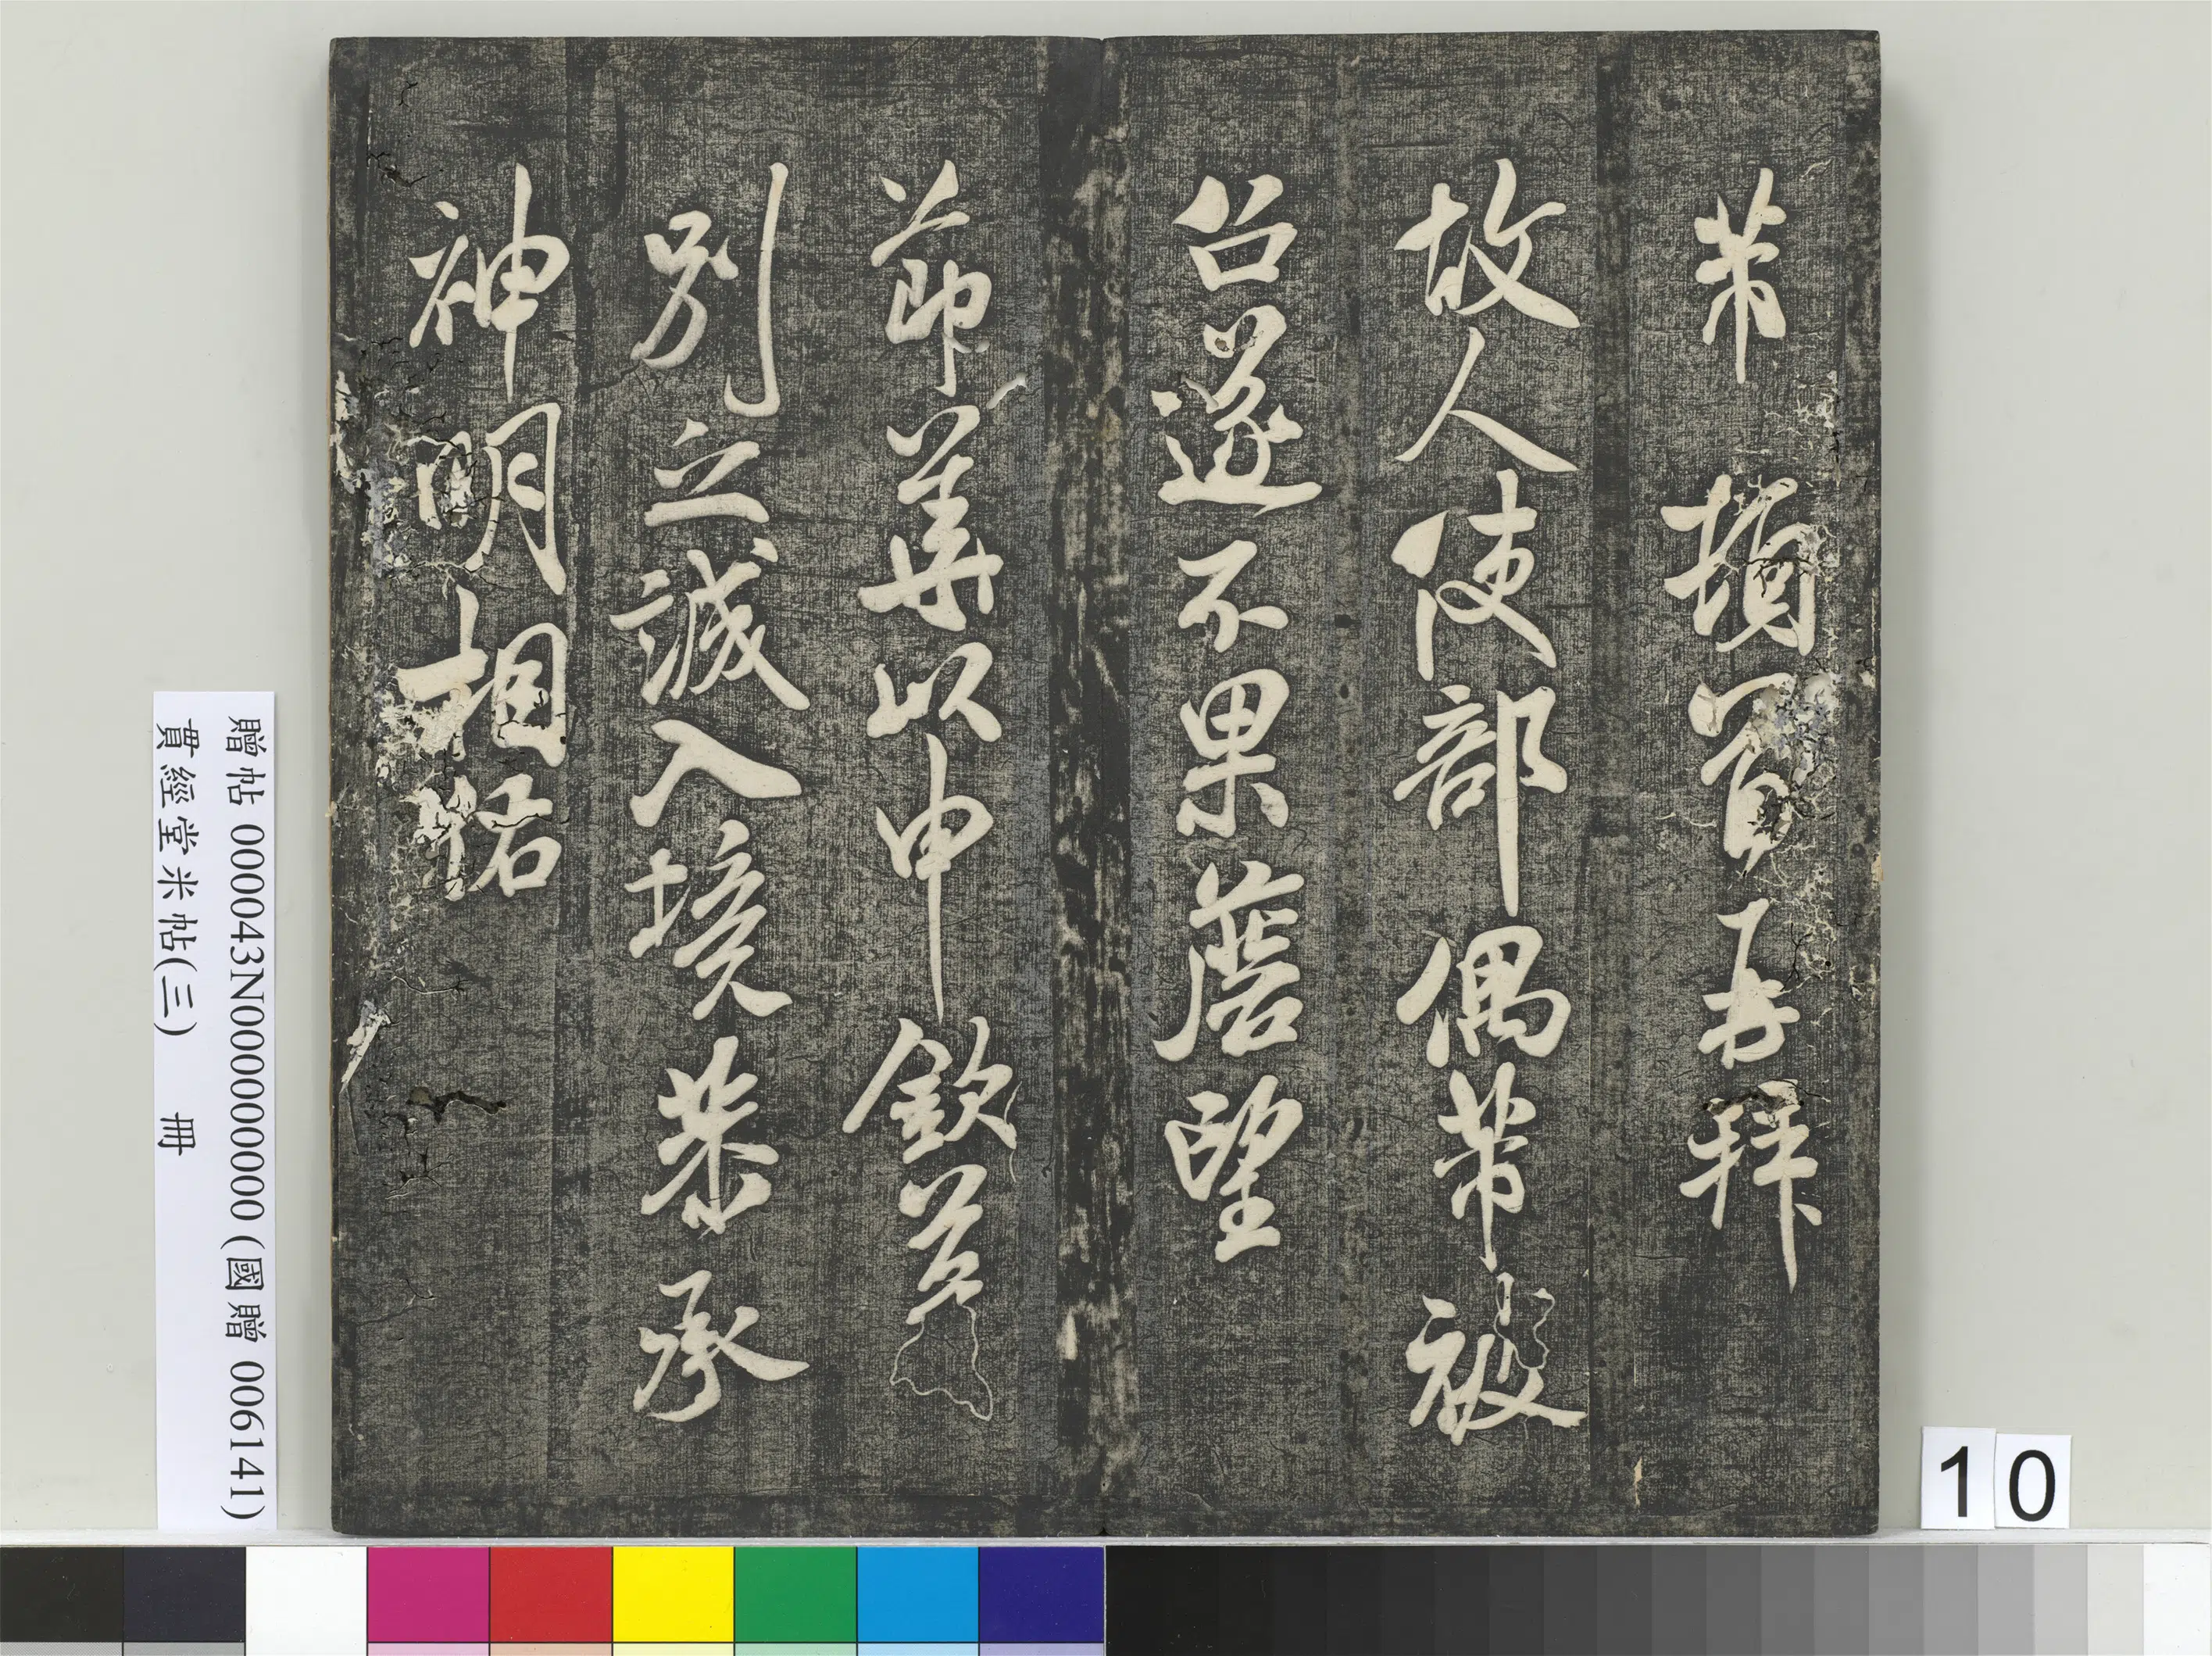 芾頓首再拜
故人使部偶芾被
召遂不果望
節華以申欽
別立誠入境恭承
神明相祐
贈帖 000043N000000000 (國贈 006141)
貫經堂米帖(三) 冊
10